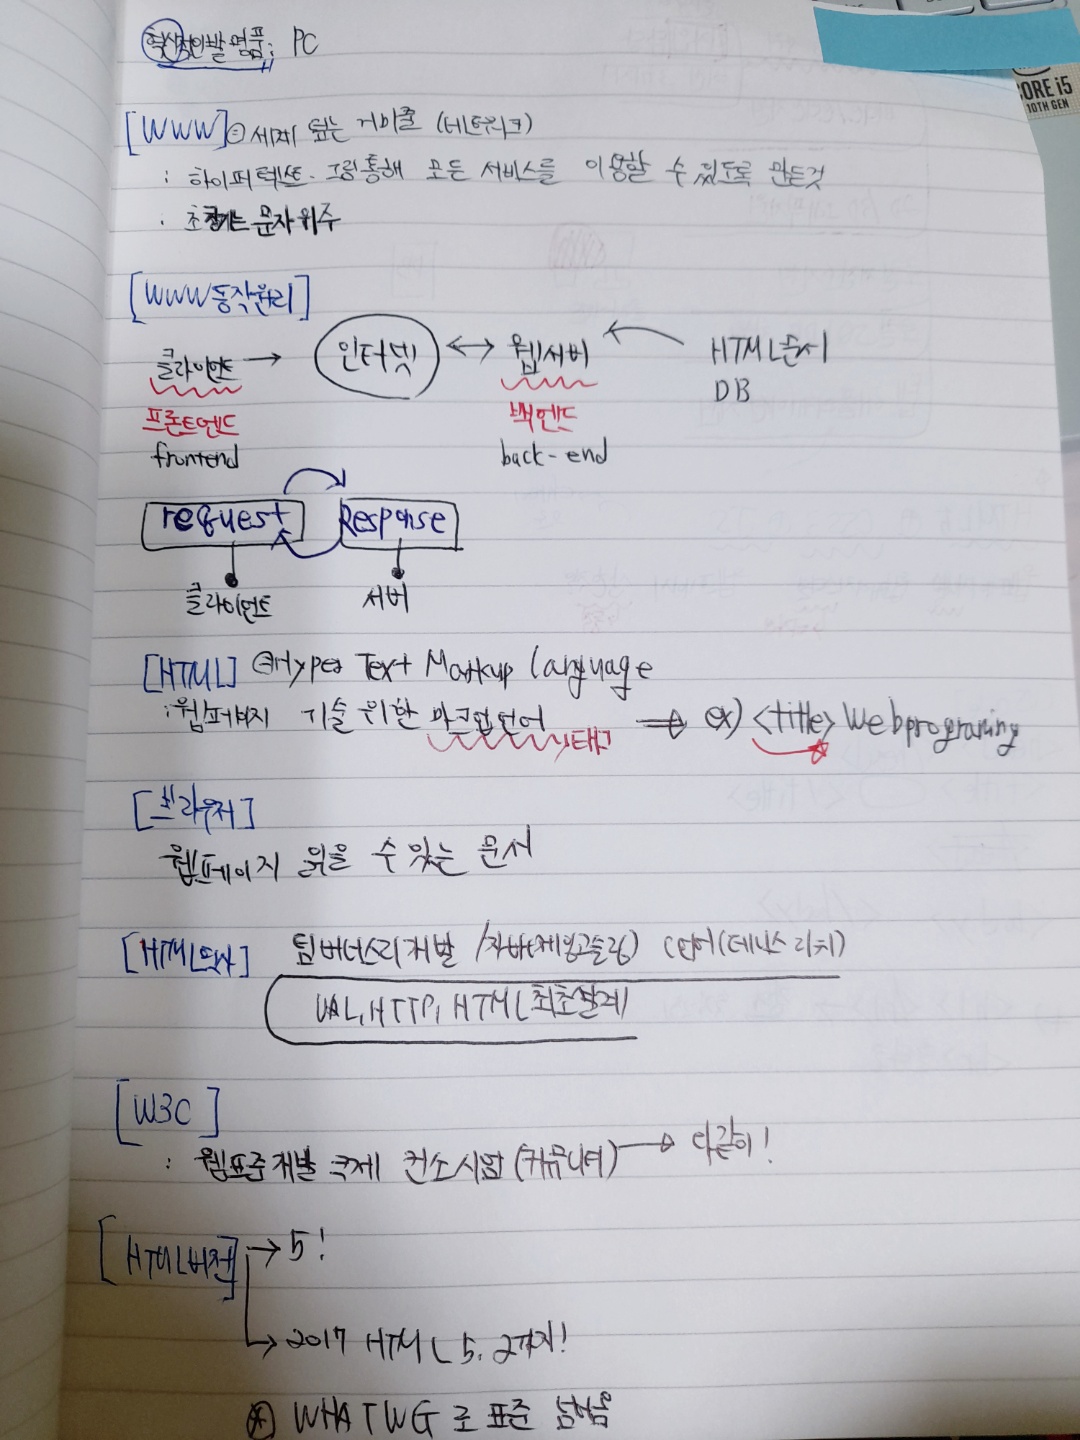 혁신적인 발명품: PC
CORE i5
10TH GEN
[WWW] 세계 덮는 거미줄 (네트워크)
: 하이퍼텍스트. 그림통해 모든 서비스를 이용할 수 있도록 만든것
: 초창기는 문자위주
[WWW동작원리]
클라이언트 → 인터넷 ↔ 웹서버 ← HTML문서
DB
프론트엔드 백엔드
frontend back-end
request Response
클라이언트 서버
[HTML] Hyper Text Markup language
: 웹페이지 기술 위한 마크업언어 → ex) <title> Webprograming
태그
[브라우저]
웹페이지 읽을 수 있는 문서
[HTML역사] 팀버너스리개발 / 자바(제임스고슬링) C언어(데니스리치)
URL, HTTP, HTML최초설계
[W3C]
: 웹표준개발 국제 컨소시엄 (커뮤니티) → 다같이!
[HTML버전] → 5!
→ 2017 HTML 5.2까지!
WHATWG로 표준 넘어옴